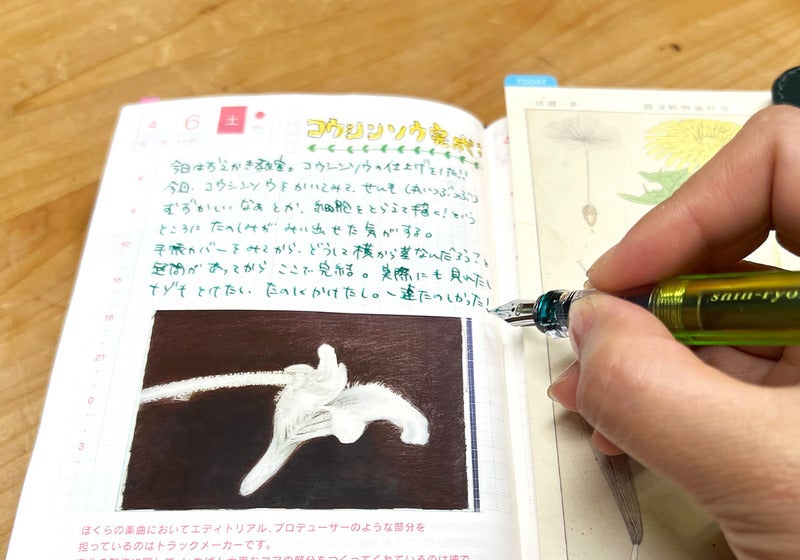 TODAY
4 6 土
コウシンソウ完成
今日はおえかき教室。コウシンソウの仕上げをした!!
今日、コウシンソウをかいてみて、せんもう
むずかしいなぁとか、細胞をとらえて描く!という
ところにたのしみがみい出せた気がする。
手帳カバーをみてから、どうして横から なんだろう?と
疑問があってから ここで完結。実際にも見れたし
ナゾもとけたし、たのしくかけたし。一連たのしかった!
12
18
21
0
3
ぼくらの楽曲においてエディトリアル、プロデューサーのような部分を
担っているのはトラックメーカーです。
shin-ryo